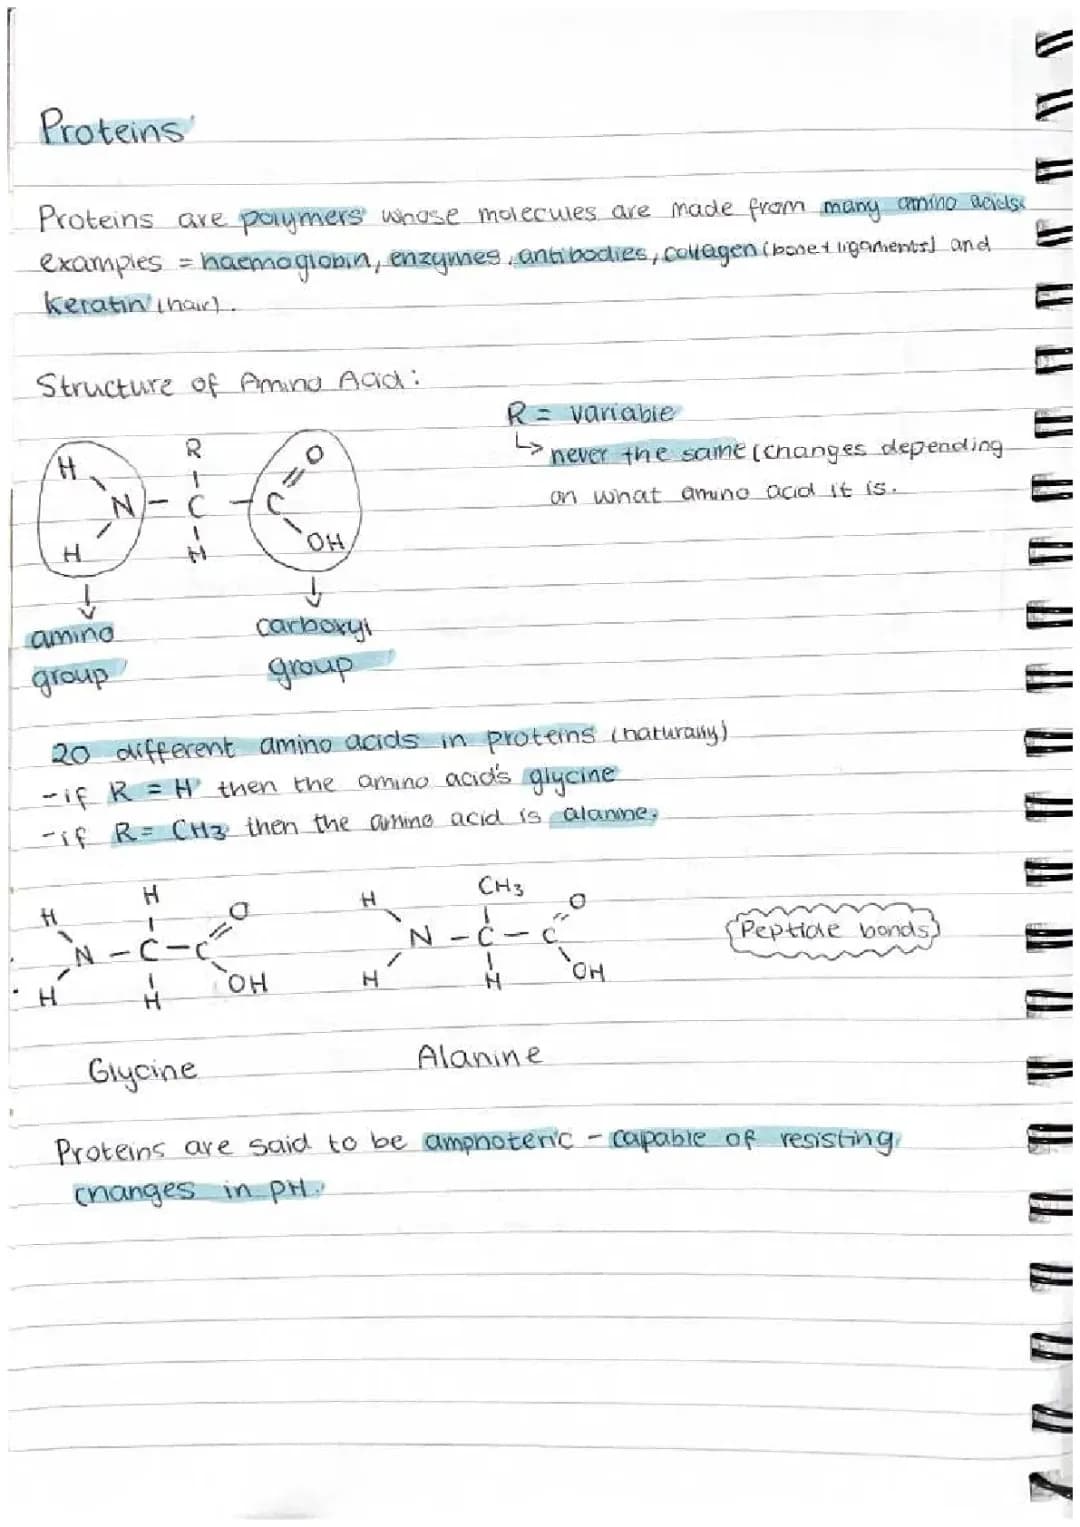 Proteins
Proteins are polymers whose molecules are made from many amino acids
examples = haemoglobin, enzymes, antibodies, collagen (bone + ligaments) and
keratin (hair).
Structure of Amino Acid:
R = variable
↳ never the same (changes depending
on what amino acid it is.
H R O
N - C - C
H H OH
amino carboxyl
group group
20 different amino acids in proteins (naturally)
- if R = H then the amino acid's glycine
- if R = CH3 then the amino acid is alanine.
H H O H CH3 O
N - C - C N - C - C Peptide bonds
H H OH H H OH
Glycine Alanine
Proteins are said to be amphoteric - capable of resisting
changes in pH.